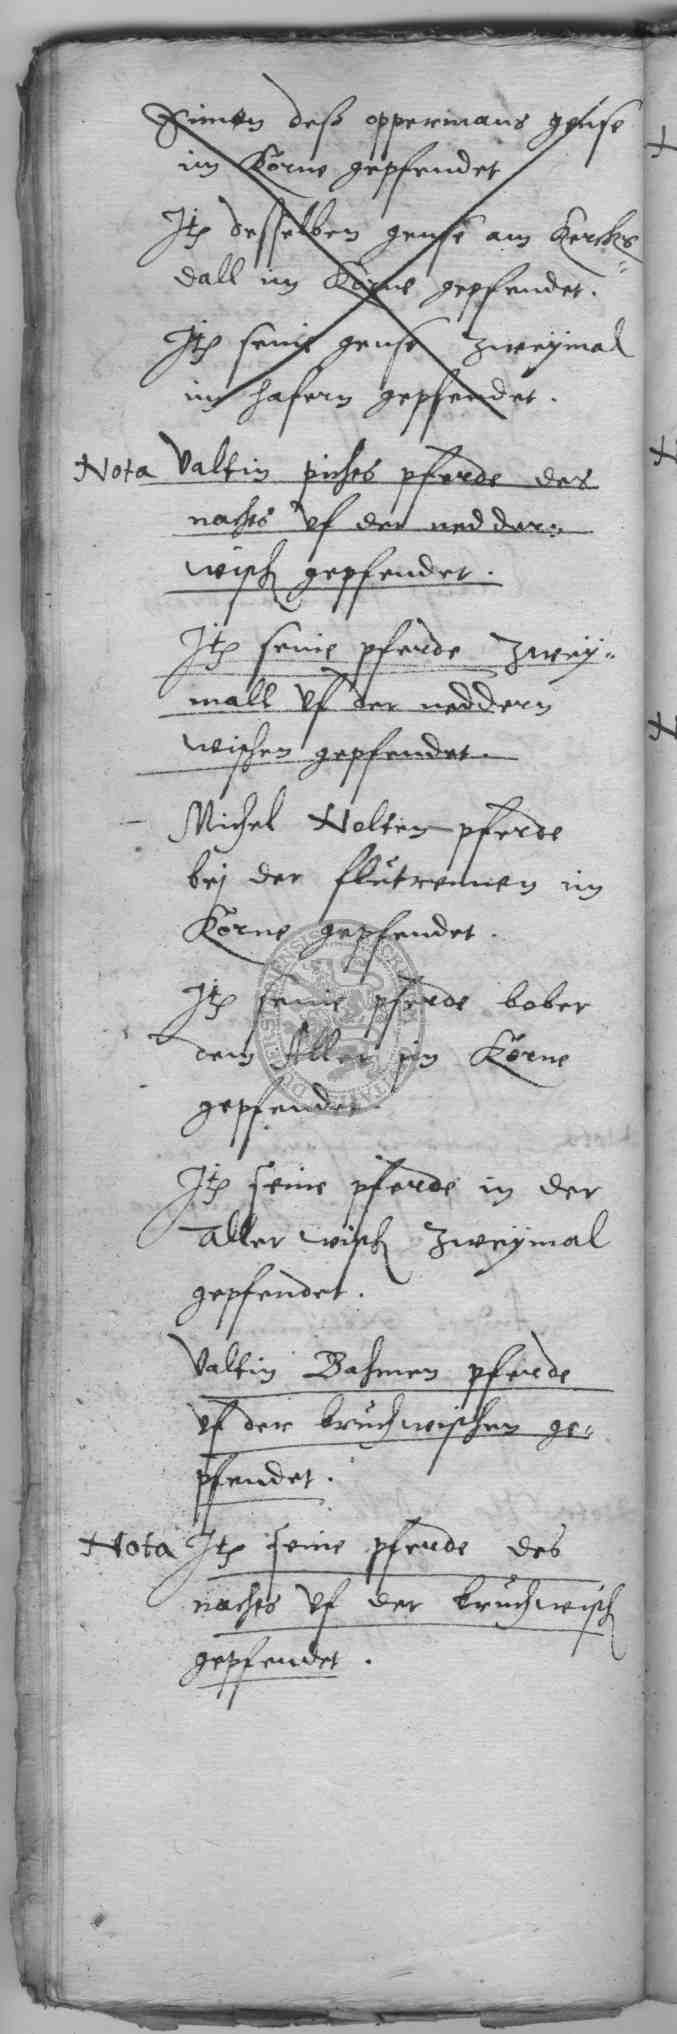 Simon deß oppermans gense
im Korne gepfendet
Jtz desselben gense am Kercks
dall im Korne gepfendet.
Jtz seine gense zweÿmal
im hafern gepfendet.
Nota Valtin pichts pferde des
nachts vf der nedder=
wisch gepfendet.
Jtz seine pferde zweÿ=
mall vf der neddern
wischen gepfendet.
Michel Nolten pferde
bej der flutrennen im
Korne gepfendet.
Jtz seine pferde bober
dem Aller im Korne
gepfendet.
Jtz seine pferde in der
aller wisch zweÿmal
gepfendet.
Valtin Dahmen pferde
vf der bruchwischen ge=
pfendet.
Nota Jtz seine pferde des
nachts vf der bruchwisch
gepfendet.